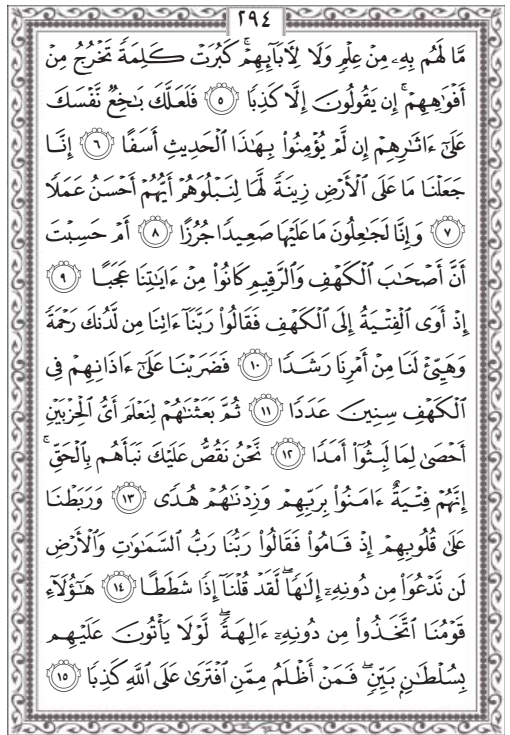 ٢٩٤
مَّا لَهُم بِهِۦ مِنْ عِلْمٍ وَلَا لِأَبَآئِهِمْ ۚ كَبُرَتْ كَلِمَةً تَخْرُجُ مِنْ
أَفْوَٰهِهِمْ ۚ إِن يَقُولُونَ إِلَّا كَذِبًا ۝٥ فَلَعَلَّكَ بَٰخِعٌ نَّفْسَكَ
عَلَىٰٓ ءَاثَٰرِهِمْ إِن لَّمْ يُؤْمِنُوا۟ بِهَٰذَا ٱلْحَدِيثِ أَسَفًا ۝٦ إِنَّا
جَعَلْنَا مَا عَلَى ٱلْأَرْضِ زِينَةً لَّهَا لِنَبْلُوَهُمْ أَيُّهُمْ أَحْسَنُ عَمَلًا
۝٧ وَإِنَّا لَجَٰعِلُونَ مَا عَلَيْهَا صَعِيدًا جُرُزًا ۝٨ أَمْ حَسِبْتَ
أَنَّ أَصْحَٰبَ ٱلْكَهْفِ وَٱلرَّقِيمِ كَانُوا۟ مِنْ ءَايَٰتِنَا عَجَبًا ۝٩
إِذْ أَوَى ٱلْفِتْيَةُ إِلَى ٱلْكَهْفِ فَقَالُوا۟ رَبَّنَآ ءَاتِنَا مِن لَّدُنكَ رَحْمَةً
وَهَيِّئْ لَنَا مِنْ أَمْرِنَا رَشَدًا ۝١٠ فَضَرَبْنَا عَلَىٰٓ ءَاذَانِهِمْ فِى
ٱلْكَهْفِ سِنِينَ عَدَدًا ۝١١ ثُمَّ بَعَثْنَٰهُمْ لِنَعْلَمَ أَىُّ ٱلْحِزْبَيْنِ
أَحْصَىٰ لِمَا لَبِثُوٓا۟ أَمَدًا ۝١٢ نَّحْنُ نَقُصُّ عَلَيْكَ نَبَأَهُم بِٱلْحَقِّ ۚ
إِنَّهُمْ فِتْيَةٌ ءَامَنُوا۟ بِرَبِّهِمْ وَزِدْنَٰهُمْ هُدًى ۝١٣ وَرَبَطْنَا
عَلَىٰ قُلُوبِهِمْ إِذْ قَامُوا۟ فَقَالُوا۟ رَبُّنَا رَبُّ ٱلسَّمَٰوَٰتِ وَٱلْأَرْضِ
لَن نَّدْعُوَا۟ مِن دُونِهِۦٓ إِلَٰهًا ۖ لَّقَدْ قُلْنَآ إِذًا شَطَطًا ۝١٤ هَٰٓؤُلَآءِ
قَوْمُنَا ٱتَّخَذُوا۟ مِن دُونِهِۦٓ ءَالِهَةً ۖ لَّوْلَا يَأْتُونَ عَلَيْهِم
بِسُلْطَٰنٍۭ بَيِّنٍ ۖ فَمَنْ أَظْلَمُ مِمَّنِ ٱفْتَرَىٰ عَلَى ٱللَّهِ كَذِبًا ۝١٥